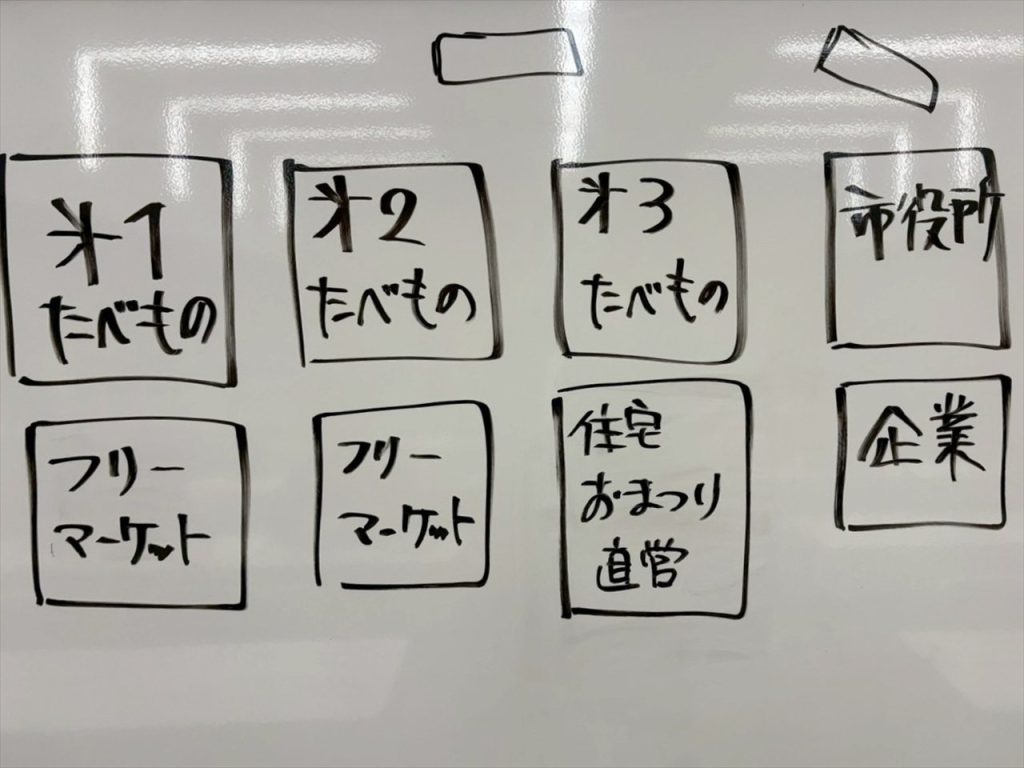 米1
たべもの
米2
たべもの
米3
たべもの
市役所
フリー
マーケット
フリー
マーケット
住宅
おまつり
直営
企業